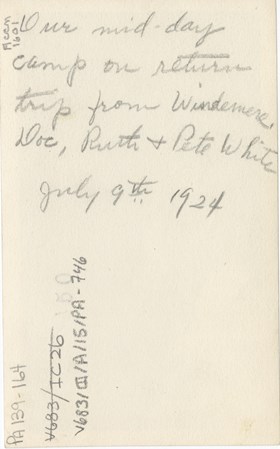 Accn
1601
Our mid-day
camp on return
trip from Windemere
Doc, Ruth & Pete White
July 9th 1924
PA139-164
V683/IC26
V683/III/A/15/PA-746